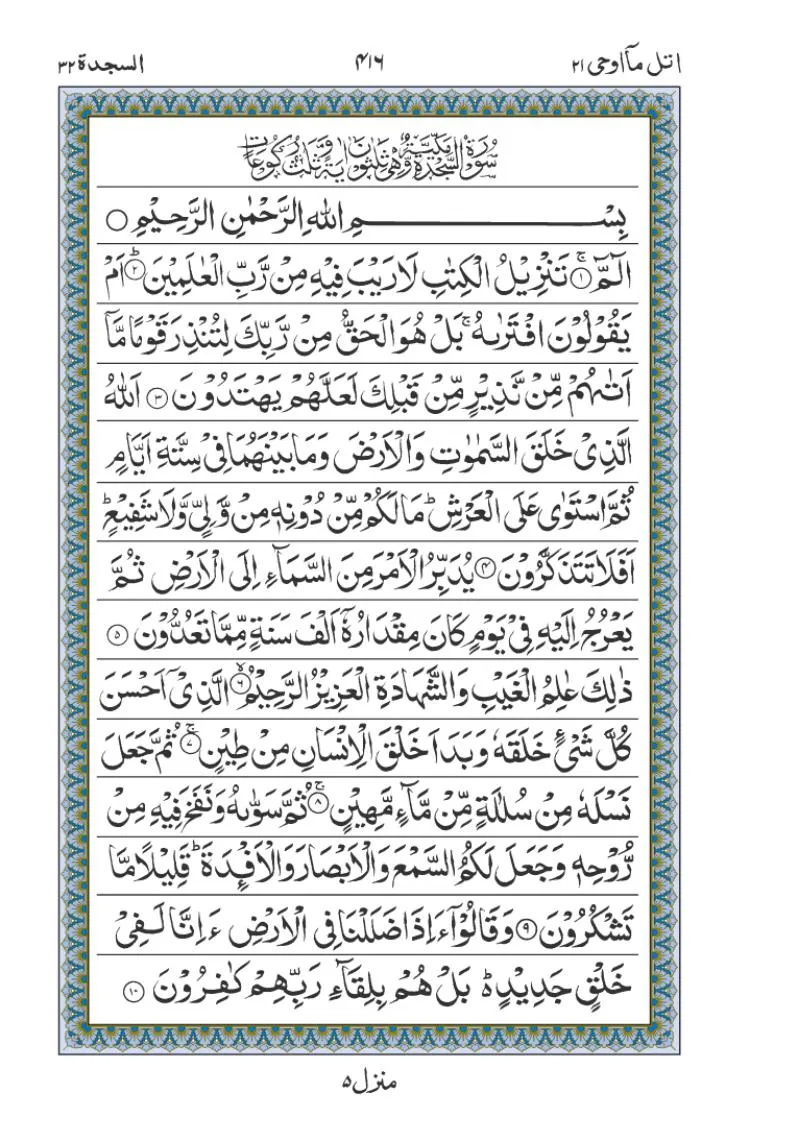 اتل مآ اوحی ۲۱ ۴۱۶ السجدة ۳۲
سُوْرَةُ السَّجْدَةِ مَكِّيَّةٌ وَّهِيَ ثَلٰثُوْنَ اٰيَةً وَّثَلٰثُ رُكُوْعَاتٍ
بِسْــــــــــــــــمِ اللهِ الرَّحْمٰنِ الرَّحِيْمِ ○
الٓمّٓ ۚ﴿۱﴾ تَنْزِيْلُ الْكِتٰبِ لَا رَيْبَ فِيْهِ مِنْ رَّبِّ الْعٰلَمِيْنَ ؕ﴿۲﴾ اَمْ
يَقُوْلُوْنَ افْتَرٰىهُ ۚ بَلْ هُوَ الْحَقُّ مِنْ رَّبِّكَ لِتُنْذِرَ قَوْمًا مَّاۤ
اَتٰىهُمْ مِّنْ نَّذِيْرٍ مِّنْ قَبْلِكَ لَعَلَّهُمْ يَهْتَدُوْنَ ﴿۳﴾ اَللهُ
الَّذِىْ خَلَقَ السَّمٰوٰتِ وَالْاَرْضَ وَمَا بَيْنَهُمَا فِىْ سِتَّةِ اَيَّامٍ
ثُمَّ اسْتَوٰى عَلَى الْعَرْشِ ؕ مَا لَكُمْ مِّنْ دُوْنِهٖ مِنْ وَّلِىٍّ وَّلَا شَفِيْعٍ ؕ
اَفَلَا تَتَذَكَّرُوْنَ ﴿۴﴾ يُدَبِّرُ الْاَمْرَ مِنَ السَّمَآءِ اِلَى الْاَرْضِ ثُمَّ
يَعْرُجُ اِلَيْهِ فِىْ يَوْمٍ كَانَ مِقْدَارُهٗۤ اَلْفَ سَنَةٍ مِّمَّا تَعُدُّوْنَ ﴿۵﴾
ذٰلِكَ عٰلِمُ الْغَيْبِ وَالشَّهَادَةِ الْعَزِيْزُ الرَّحِيْمُ ۙ﴿۶﴾ الَّذِىْۤ اَحْسَنَ
كُلَّ شَىْءٍ خَلَقَهٗ وَبَدَاَ خَلْقَ الْاِنْسَانِ مِنْ طِيْنٍ ۚ﴿۷﴾ ثُمَّ جَعَلَ
نَسْلَهٗ مِنْ سُلٰلَةٍ مِّنْ مَّآءٍ مَّهِيْنٍ ۚ﴿۸﴾ ثُمَّ سَوّٰىهُ وَنَفَخَ فِيْهِ مِنْ
رُّوْحِهٖ وَجَعَلَ لَكُمُ السَّمْعَ وَالْاَبْصَارَ وَالْاَفْـِٕدَةَ ؕ قَلِيْلًا مَّا
تَشْكُرُوْنَ ﴿۹﴾ وَقَالُوْۤا ءَاِذَا ضَلَلْنَا فِى الْاَرْضِ ءَاِنَّا لَفِىْ
خَلْقٍ جَدِيْدٍ ؕ۬ بَلْ هُمْ بِلِقَآءِ رَبِّهِمْ كٰفِرُوْنَ ﴿۱۰﴾
منزل ۵